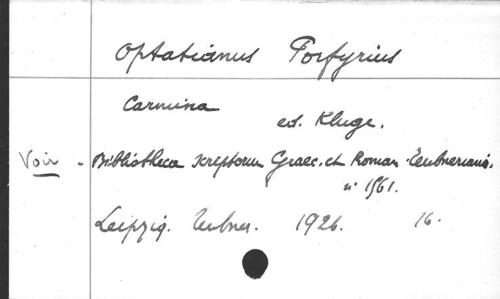 Optatianus Porfyrius
Carmina
ed. Kluge.
Voir - Bibliotheca scriptorum Graec. et Roman. Teubneriana.
n° 1561.
Leipzig. Teubner. 1926. 16.